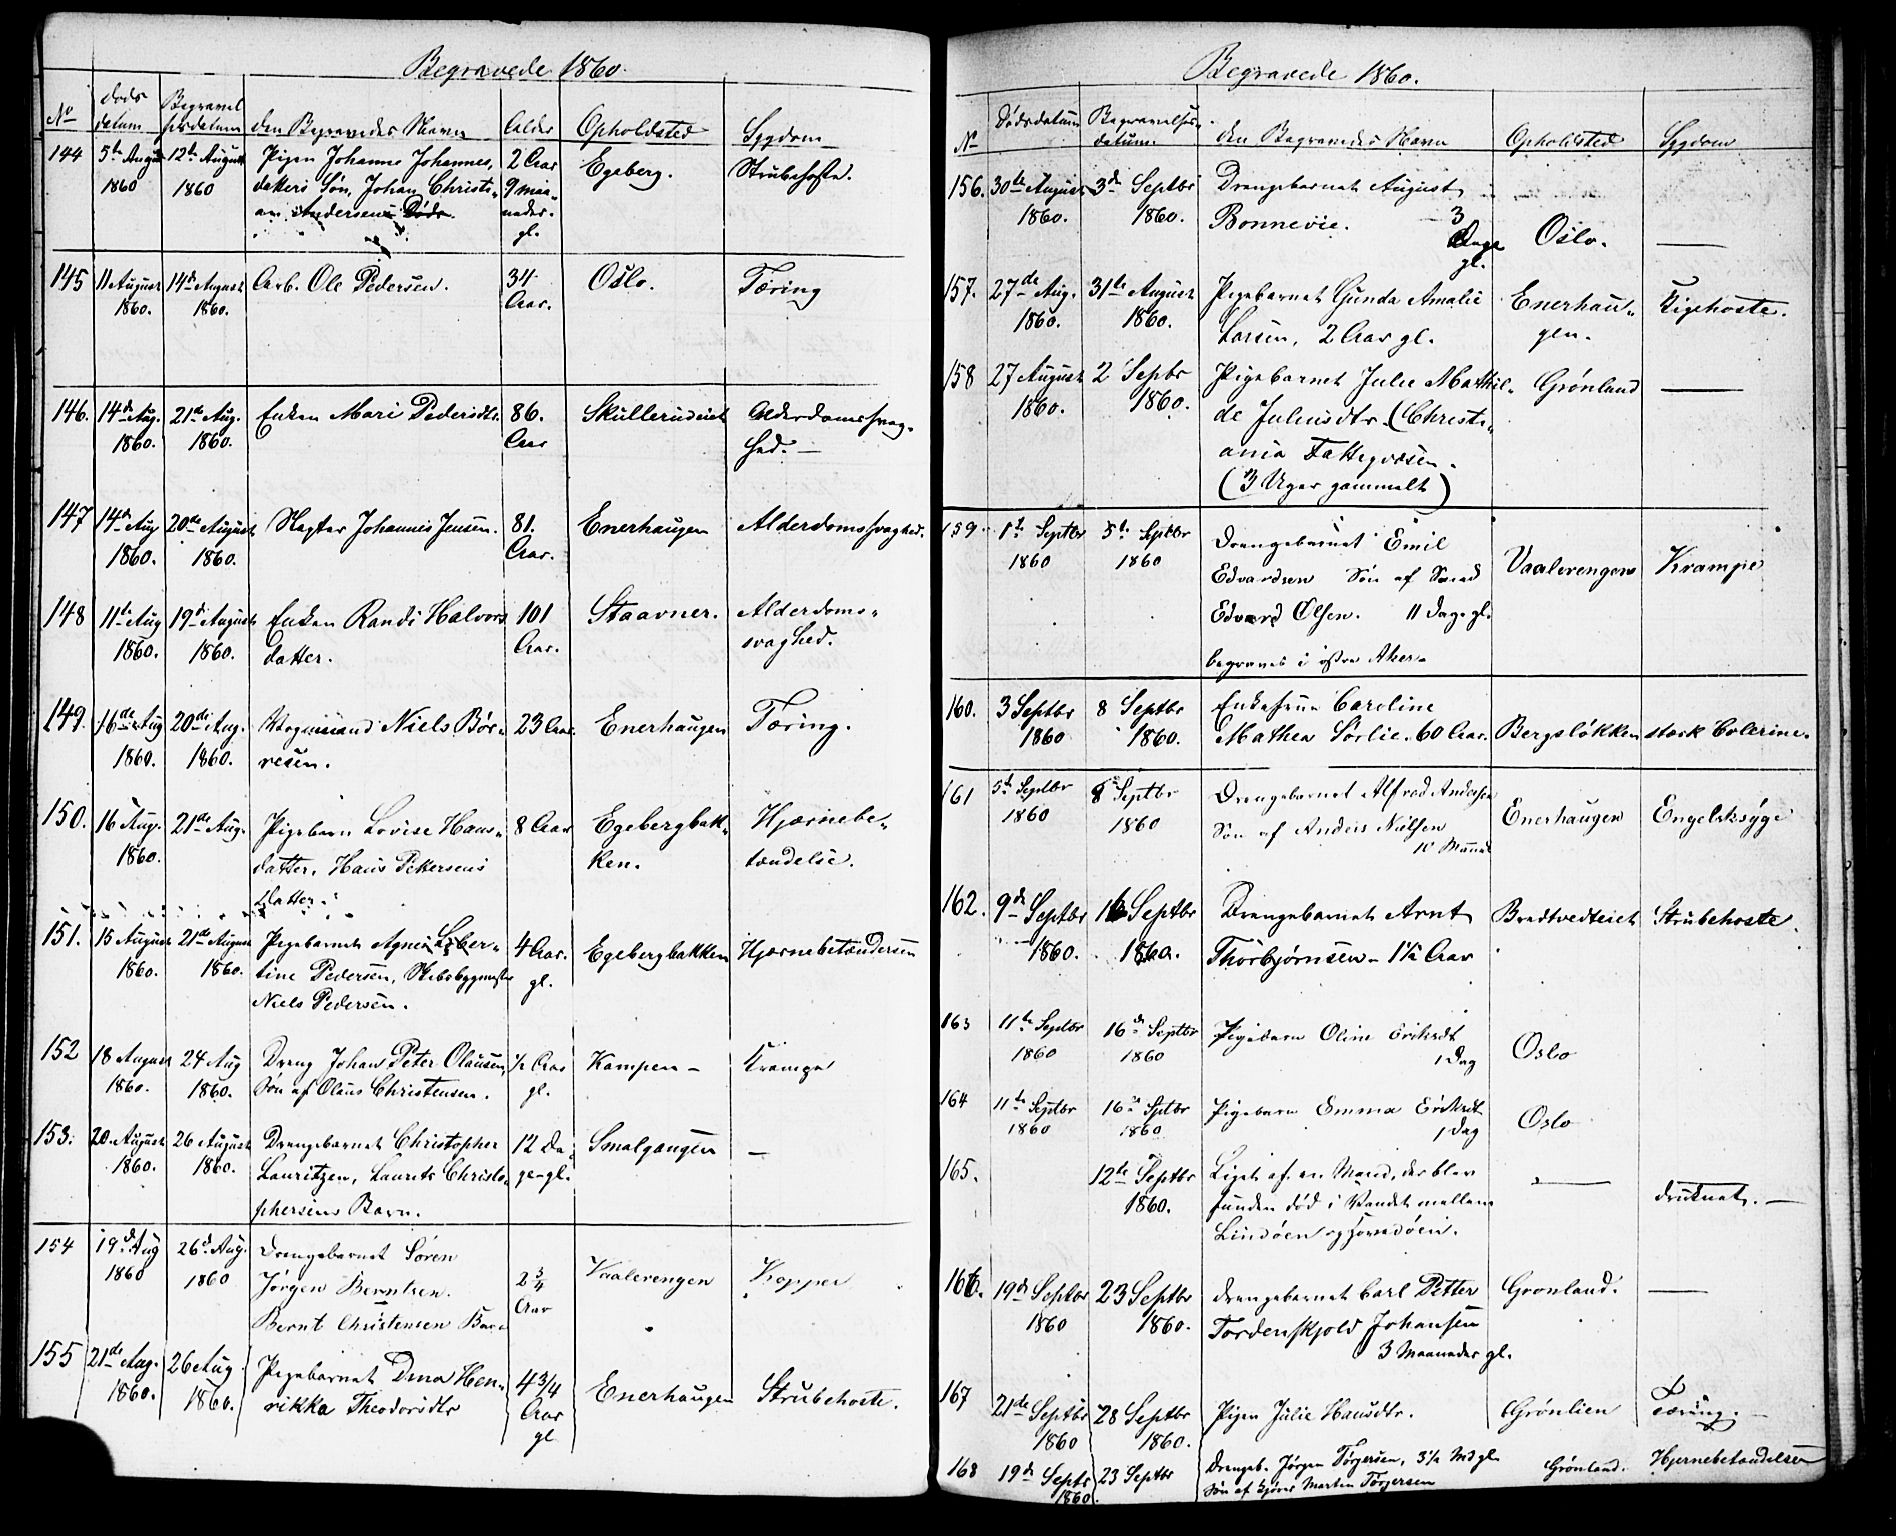 Begravede 1860.
No
døds datum
Begravelsesdatum
den Begravedes Navn
Alder
Opholdsted
Sygdom
144 5te August 1860 12te August 1860 Pigen Johanne Johannes, 2 Aar Egeberg. Strubehoste.
datters Søn, Johan Christi- 9 maa-
an Andersens Døds neder.
gl.
145 11 August 1860. 14de August 1860. Arb. Ole Pedersen. 34 Aar. Oslo. Tæring
146. 14de Aug. 1860. 21de Aug. 1860. Enken Mari Pedersdtr. 86. Aar Skullerudeiet Alderdomssvag-
hed. —
147 14de Aug 1860. 20de August 1860. Slagter Johannes Jensen. 81. Aar. Enerhaugen Alderdomssvaghed.
148 11te Aug 1860. 19de August 1860. Enken Randi Halvors 101 Aar. Staavner. Alderdoms-
datter. svaghed.
149. 16de Aug 1860. 20de Aug. 1860. Vognmand Niels Bør- 23 Aar. Enerhaugen Tæring.
resen.
150. 16 Aug. 1860. 21de Aug. Pigebarn Lovise Hans- 8 Aar Egebergbak- Hjernebe-
datter. Hans Pettersens ken. tændelse.
Datter.
151. 15 August 1860. 21de August 1860. Pigebarnet Agnes Liber- 4 Aar. gl. Egebergbakken Hjernebetændersen
tine Pedersen, Skibsbygmester
Niels Pedersen.
152 18 August 1860. 24 Aug 1860. Dreng Johan Peter Olausen, ½ Aar gl. Kampen — Krampe
Søn af Olaus Christensen.
153. 20. August 1860. 26 August 1860. Drengebarnet Christopher 12 Da- Smalgangen —
Lauritzen, Laurits Christo- ge-gl.
phersens Barn.
154 19de Aug 1860 26de Aug. 1860 Drengebarnet Søren
Jørgen Berntsen. 2¾ Aar Vaalerengen Kopper
Bernt Christensen Barn
155 21de Aug. 1860. 26 Aug 1860. Pigebarnet Dina Hen- 4¾ Aar gl Enerhaugen Strubehoste.
rikka Theodorsdtr
Begravede 1860.
No
Dødsdatum
Begravelses-datum.
den Begravedes Navn
Opholdsted
Sygdom
156. 30te August 1860. 3de Septbr 1860. Drengebarnet August
Bonnevie. 3 Dage gl. Oslo. —
157. 27de Aug. 1860. 31te August 1860. Pigebarnet Gunda Amalie Enerhau- Kighoste.
Larsen, 2 Aar gl. gen.
158 27 August 1860. 2 Septbr 1860. Pigebarnet Julie Mathil- Grønland —
de Juliusdtr. (Christi-
ania Fattigvæsen.
(3 Uger gammelt)
159. 1te Septbr 1860 5te Septbr 1860 Drengebarnet Emil
Edvardsen Søn af Smed Vaalerengen Krampe
Edvard Olsen. 11 Dage gl.
begraves i østre Aker.
160. 3 Septbr 1860 8 Septbr 1860. Enkefrue Caroline
Mathea Sørlie. 60 Aar. Bergsløkken stærk Colerine.
161 5te Septbr 1860 8 Septbr 1860 Drengebarnet Alfred Andersen
Søn af Anders Nielsen Enerhaugen Engelsksyge
10 Maaned
162. 9de Septbr 1860. 16 Septbr 1860. Drengebarnet Arnt Bredtvedteiet Strubehoste.
Thorbjørnsen — 1½ Aar
163 11te Septbr 1860 16de Septbr 1860 Pigebarn Oline Eriksdt Oslo
1 Dag
164 11te Septbr 1860 16de Septbr 1860 Pigebarn Emma Eriksdt Oslo
1 Dag
165. 12te Septbr 1860. Liget af en Mand, der blev —
funden død i Vandet mellem druknet. —
Lindøen og Hovedøen.
166. 19de Septbr 1860 23 Septbr 1860. Drengebarnet Carl Petter Grønland. —
Tordenskjold Johansen
3 Maaneder gl.
167 21de Septbr 1860 28 Septbr 1860. Pigen Julie Hansdtr. Grønlien Tæring. —
168 19de Septr 1860. 23 Septbr Drengeb. Jørgen Torgersen, 3½ Md gl Grønland. Hjernebetændelsen
Søn af Martin Torgersen